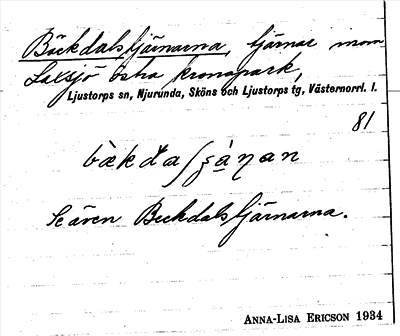 Bäckdalstjärnarna, tjärnar inom
Laxsjö östra kronopark,
Ljustorps sn, Njurunda, Sköns och Ljustorps tg, Västernorrl. l.
81
Se även Beckdalstjärnarna.
ANNA-LISA ERICSON 1934